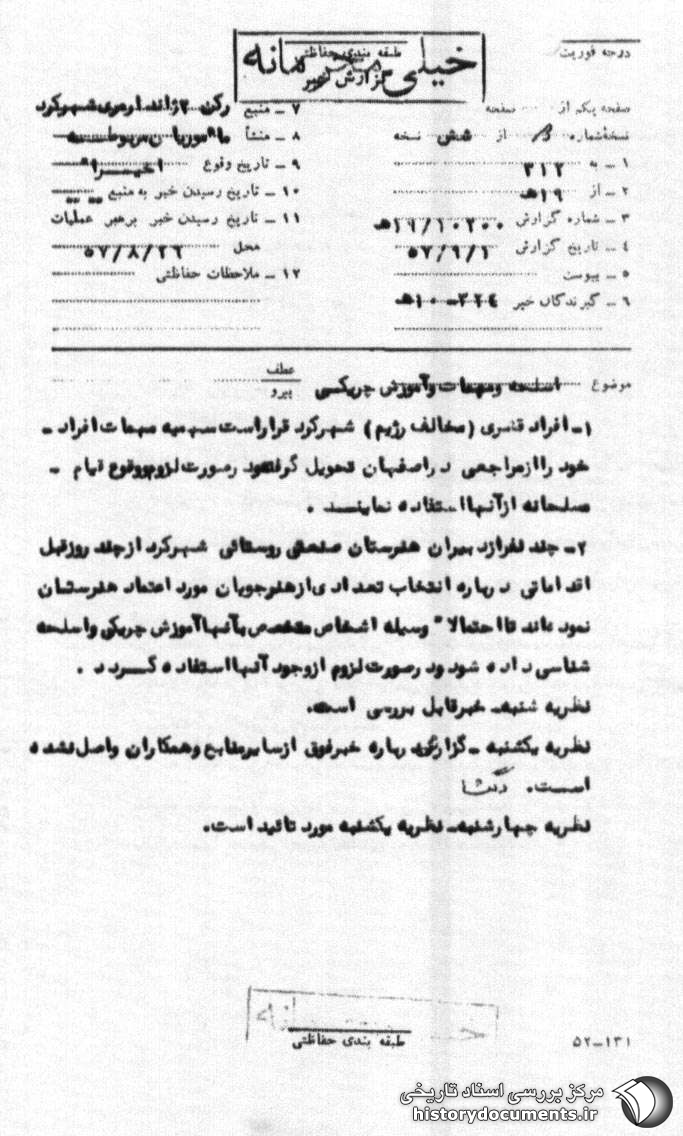 درجه فوریت
طبقه بندی حفاظتی
خیلی محرمانه
گزارش خبر
صفحه یکم از صفحه
نسخه شماره از شش نسخه
۱ ـ به ۳۱۲
۲ ـ از ۱۹هـ
۳ ـ شماره گزارش ۱۹/۱۰۲۰۰هـ
۴ ـ تاریخ گزارش ۵۷/۹/۱
۵ ـ پیوست
۶ ـ گیرندگان خبر ۳۲۴ـ۱۰هـ
۷ ـ منبع رکن ۲ ژاندارمری شهرکرد
۸ ـ منشأ مأمورین مربوطه
۹ ـ تاریخ وقوع اخیراً
۱۰ ـ تاریخ رسیدن خبر به منبع ــ ــ
۱۱ ـ تاریخ رسیدن خبر برهبر عملیات
محل ۵۷/۸/۲۶
۱۲ ـ ملاحظات حفاظتی
موضوع اسلحه و مهمات و آموزش چریکی
عطف
پیرو
۱ـ افراد قشری (مخالف رژیم) شهرکرد قرار است سهمیه مهمات افراد ـ
خود را از مراجعی در اصفهان تحویل گرفته و در صورت لزوم و وقوع قیام ـ
مسلحانه از آنها استفاده نمایند .
۲ـ چند نفر از دبیران هنرستان صنعتی روستائی شهرکرد از چند روز قبل
اقداماتی درباره انتخاب تعدادی از هنرجویان مورد اعتماد هنرستان
نموده‌اند تا احتمالا" وسیله اشخاص متخصص به آنها آموزش چریکی و اسلحه
شناسی داده شود و در صورت لزوم از وجود آنها استفاده گردد .
نظریه شنبه ـ خبر قابل بررسی است.
نظریه یکشنبه ـ گزارشی درباره خبر فوق از سایر منابع و همکاران واصل نشده
است.
نظریه چهارشنبه ـ نظریه یکشنبه مورد تائید است.
طبقه بندی حفاظتی
۵۲ـ۱۳۱
مرکز بررسی اسناد تاریخی
historydocuments.ir